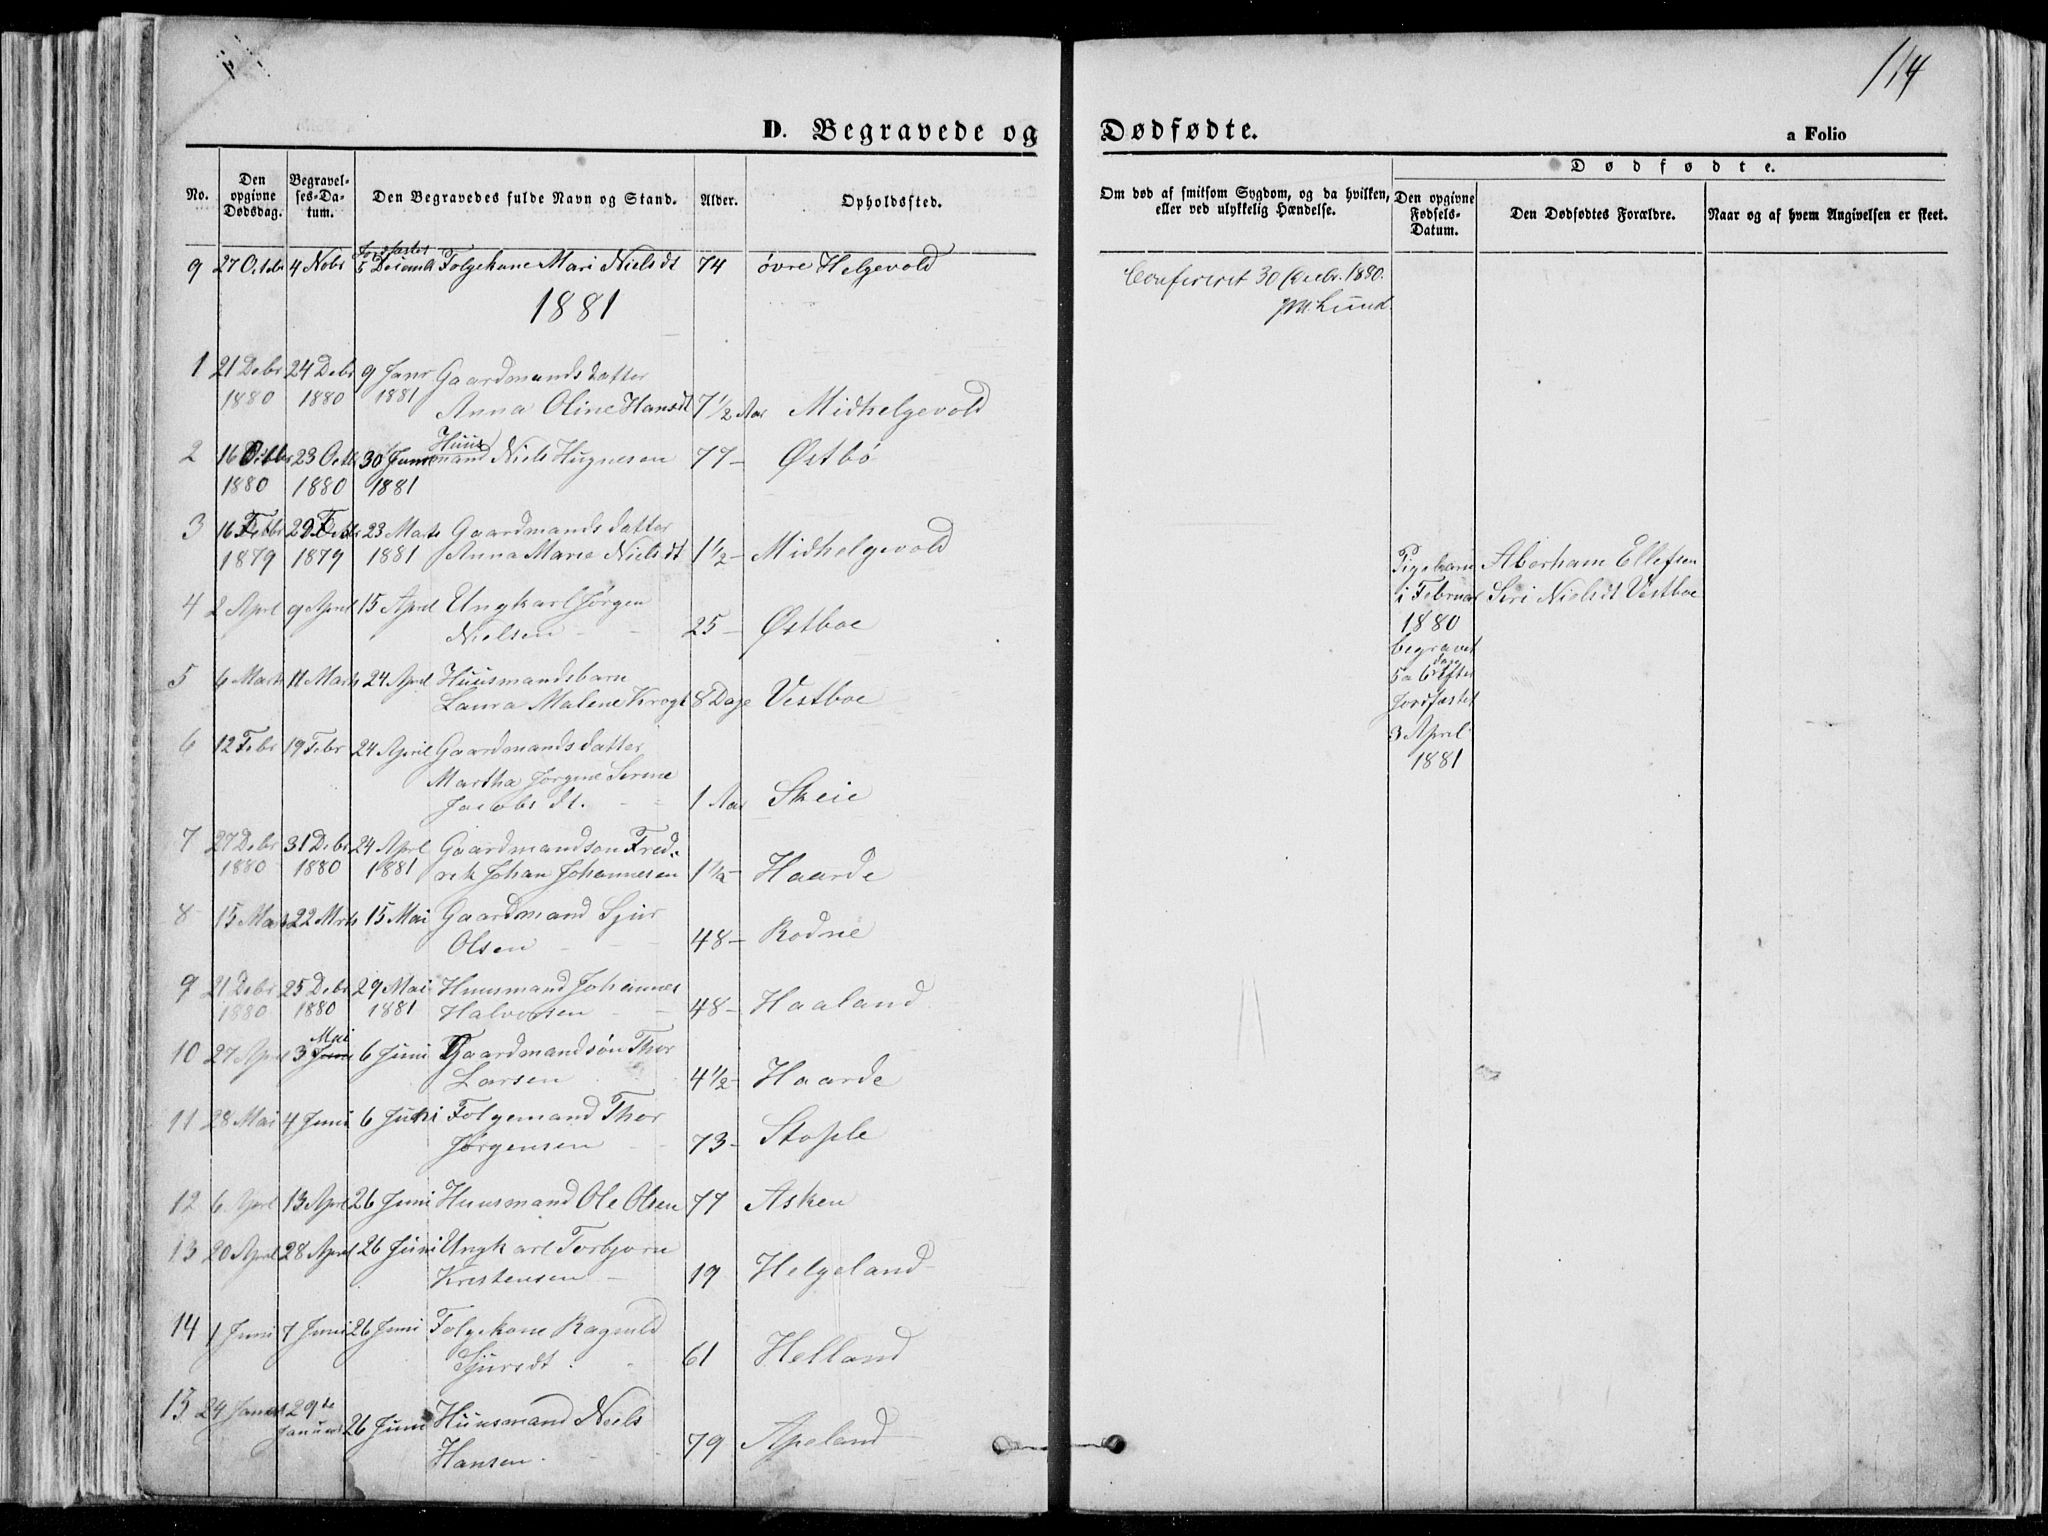 114
D. Begravede og Dødfødte.
a Folio
No.
Den opgivne Dødsdag.
Begravel-ses-Da-tum.
Den Begravedes fulde Navn og Stand.
Alder.
Opholdssted.
Om død af smitsom Sygdom, og da hvilken, eller ved ulykkelig Hændelse.
Dødfødte.
Den opgivne Fødsels-Datum.
Den Dødfødtes Forældre.
Naar og af hvem Angivelsen er skeet.
9 27 Octbr 4 Nobr 5 Decemb Folgekone Mari Nielsdt 74 øvre Helgevold
Confereret 30 Decbr. 1880.
Lund.
1881
1 21 Debr 24 Debr 9 Janr Gaardmandsdatter
1880 1880 1881 Anna Oline Hansdt 7 1/2 Aar Midhelgevold
2 16 Octbr 23 Octb 30 Janr Huusmand Niels Hugnesen 77 - Østbø
1880 1880 1881
3 16 Febr 20 Febr 23 Marts Gaardmandsdatter
1879 1879 1881 Anna Marie Nielsdt 1 1/2 - Midhelgevold
4 2 Aprl 9 April 15 April Ungkarl Jørgen
Nielsen 25 - Østboe
5 6 Marts 11 Marts 24 April Huusmandsbarn
Laura Malene Krogh 8 Dage Vestboe
6 12 Febr 19 Febr 24 April Gaardmandsdatter
Martha Jørgine Serine
Jacobsdt. 1 Aar Skeie
7 27 Debr 31 Debr 24 Aprl Gaardmandson Fred-
1880 1880 1881 rik Johan Johannesen 1 1/2 - Haarde
8 15 Marts 22 Mrts 15 Mai Gaardmand Sjur
Olsen 48 - Rodne
9 21 Debr 25 Debr 29 Mai Huusmand Johannes
1880 1880 1881 Halvorsen 48 - Haaland
10 27 Aprl 3 Juni Mai 6 Juni Gaardmandsøn Thor
Larsen 4 1/2 - Haarde
11 28 Mai 4 Juni 6 Juni Folgemand Thor
Jørgensen 73 - Stople
12 6. Aprl 13 Aprl 26 Juni Huusmand Ole Olsen 77 Asken
13 20 April 28 April 26 Juni Ungkarl Torbjørn
Kristensen 19 Helgeland
14 1 Juni 7 Juni 26 Juni Folgekone Ragnild
Sjursdt. 61 Helland
15 24 Januar 29de Januar 26 Juni Huusmand Niels
Hansen. 79 Apeland
Pigebarn Aberham Ellefsen
i Februar Siri Nielsdt Vestboe
1880
begravet
5 a 6 dage efter
Jordfæstet
3 April
1881